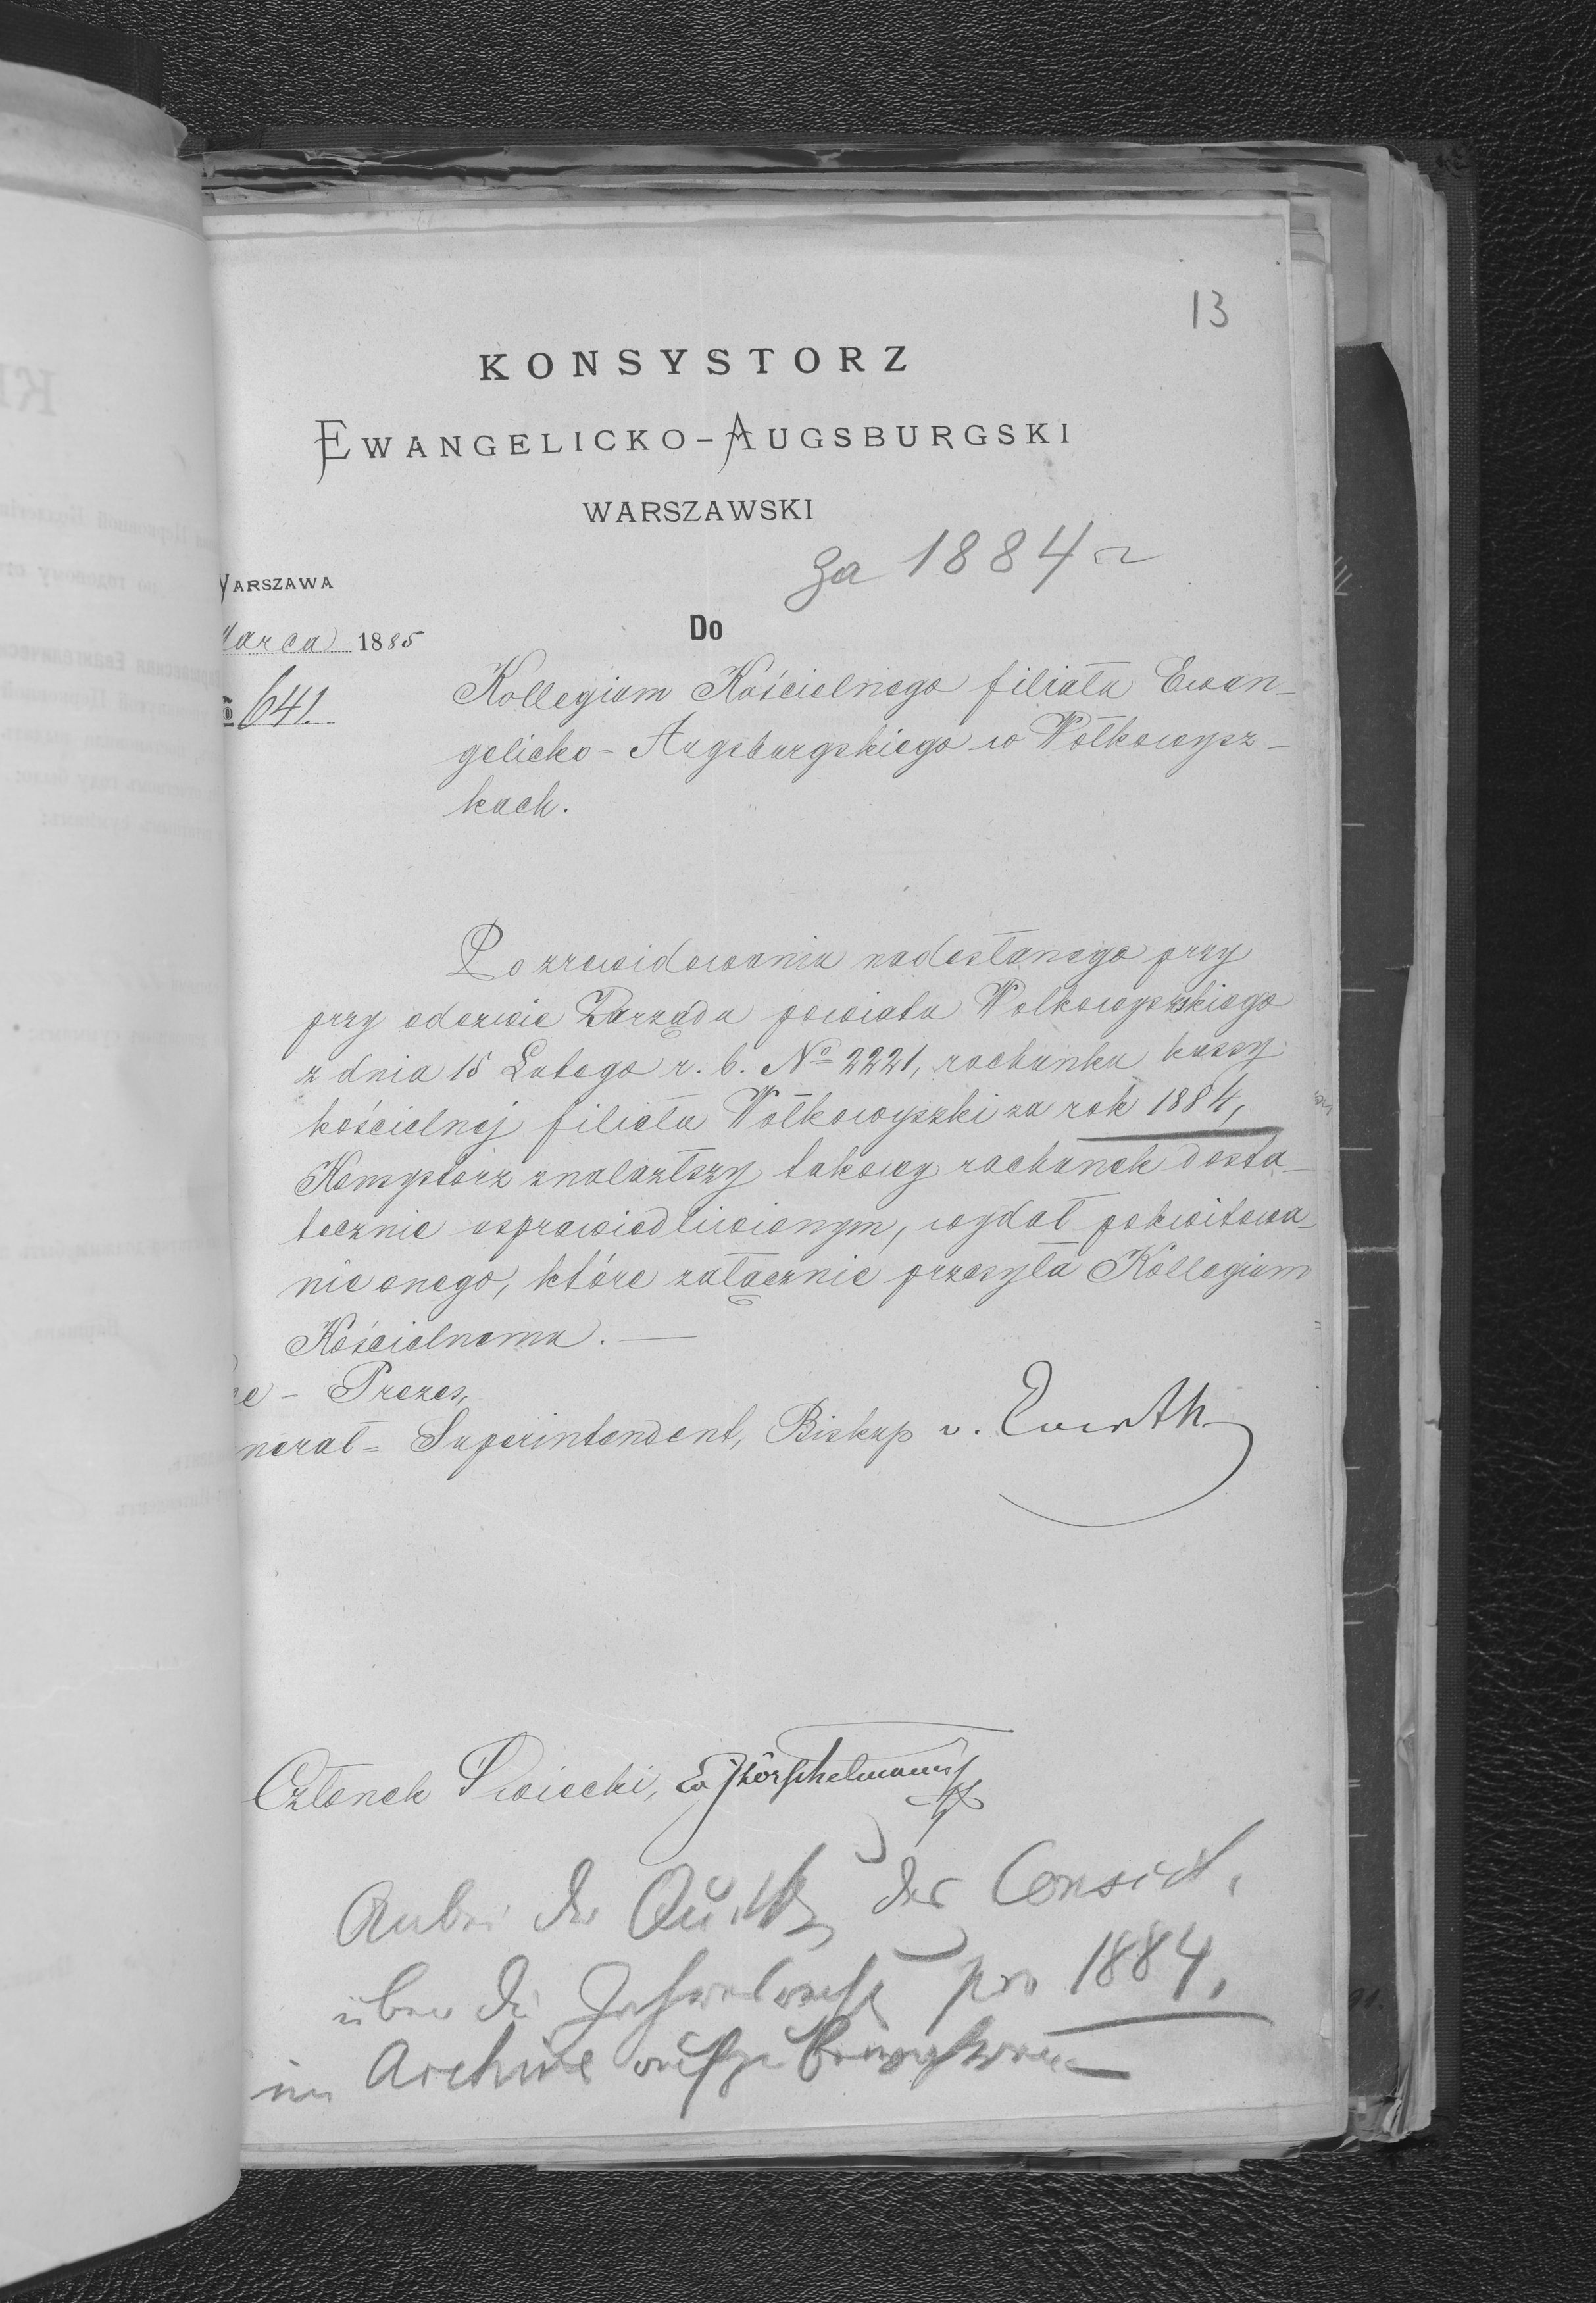 13
KONSYSTORZ
EWANGELICKO-AUGSBURGSKI
WARSZAWSKI
za 1884 r
WARSZAWA
Marca 1885
Do
№ 641.
Kollegium Kościelnego filiału Ewan-
gelicko-Augsburgskiego w Wołkowysz-
kach.
Po zrewidowaniu nadesłanego przy
przy odezwie Zarządu powiatu Wołkowyszskiego
z dnia 15 Lutego r. b. № 2221, rachunku kassy
kościelnej filiału Wołkowyszki za rok 1884,
Konsystorz znalazłszy takowy rachunek dosta-
tecznie usprawiedliwionym, wydał pokwitowa-
nie onego, które załącznie przesyła Kollegium
Kościelnemu.
ce - Prezes,
neral = Superintendent, Biskup v. Everth
Członek Swiecki, Hörschelmann
Anbei die der Consist.
über die pro 1884.
im Archive